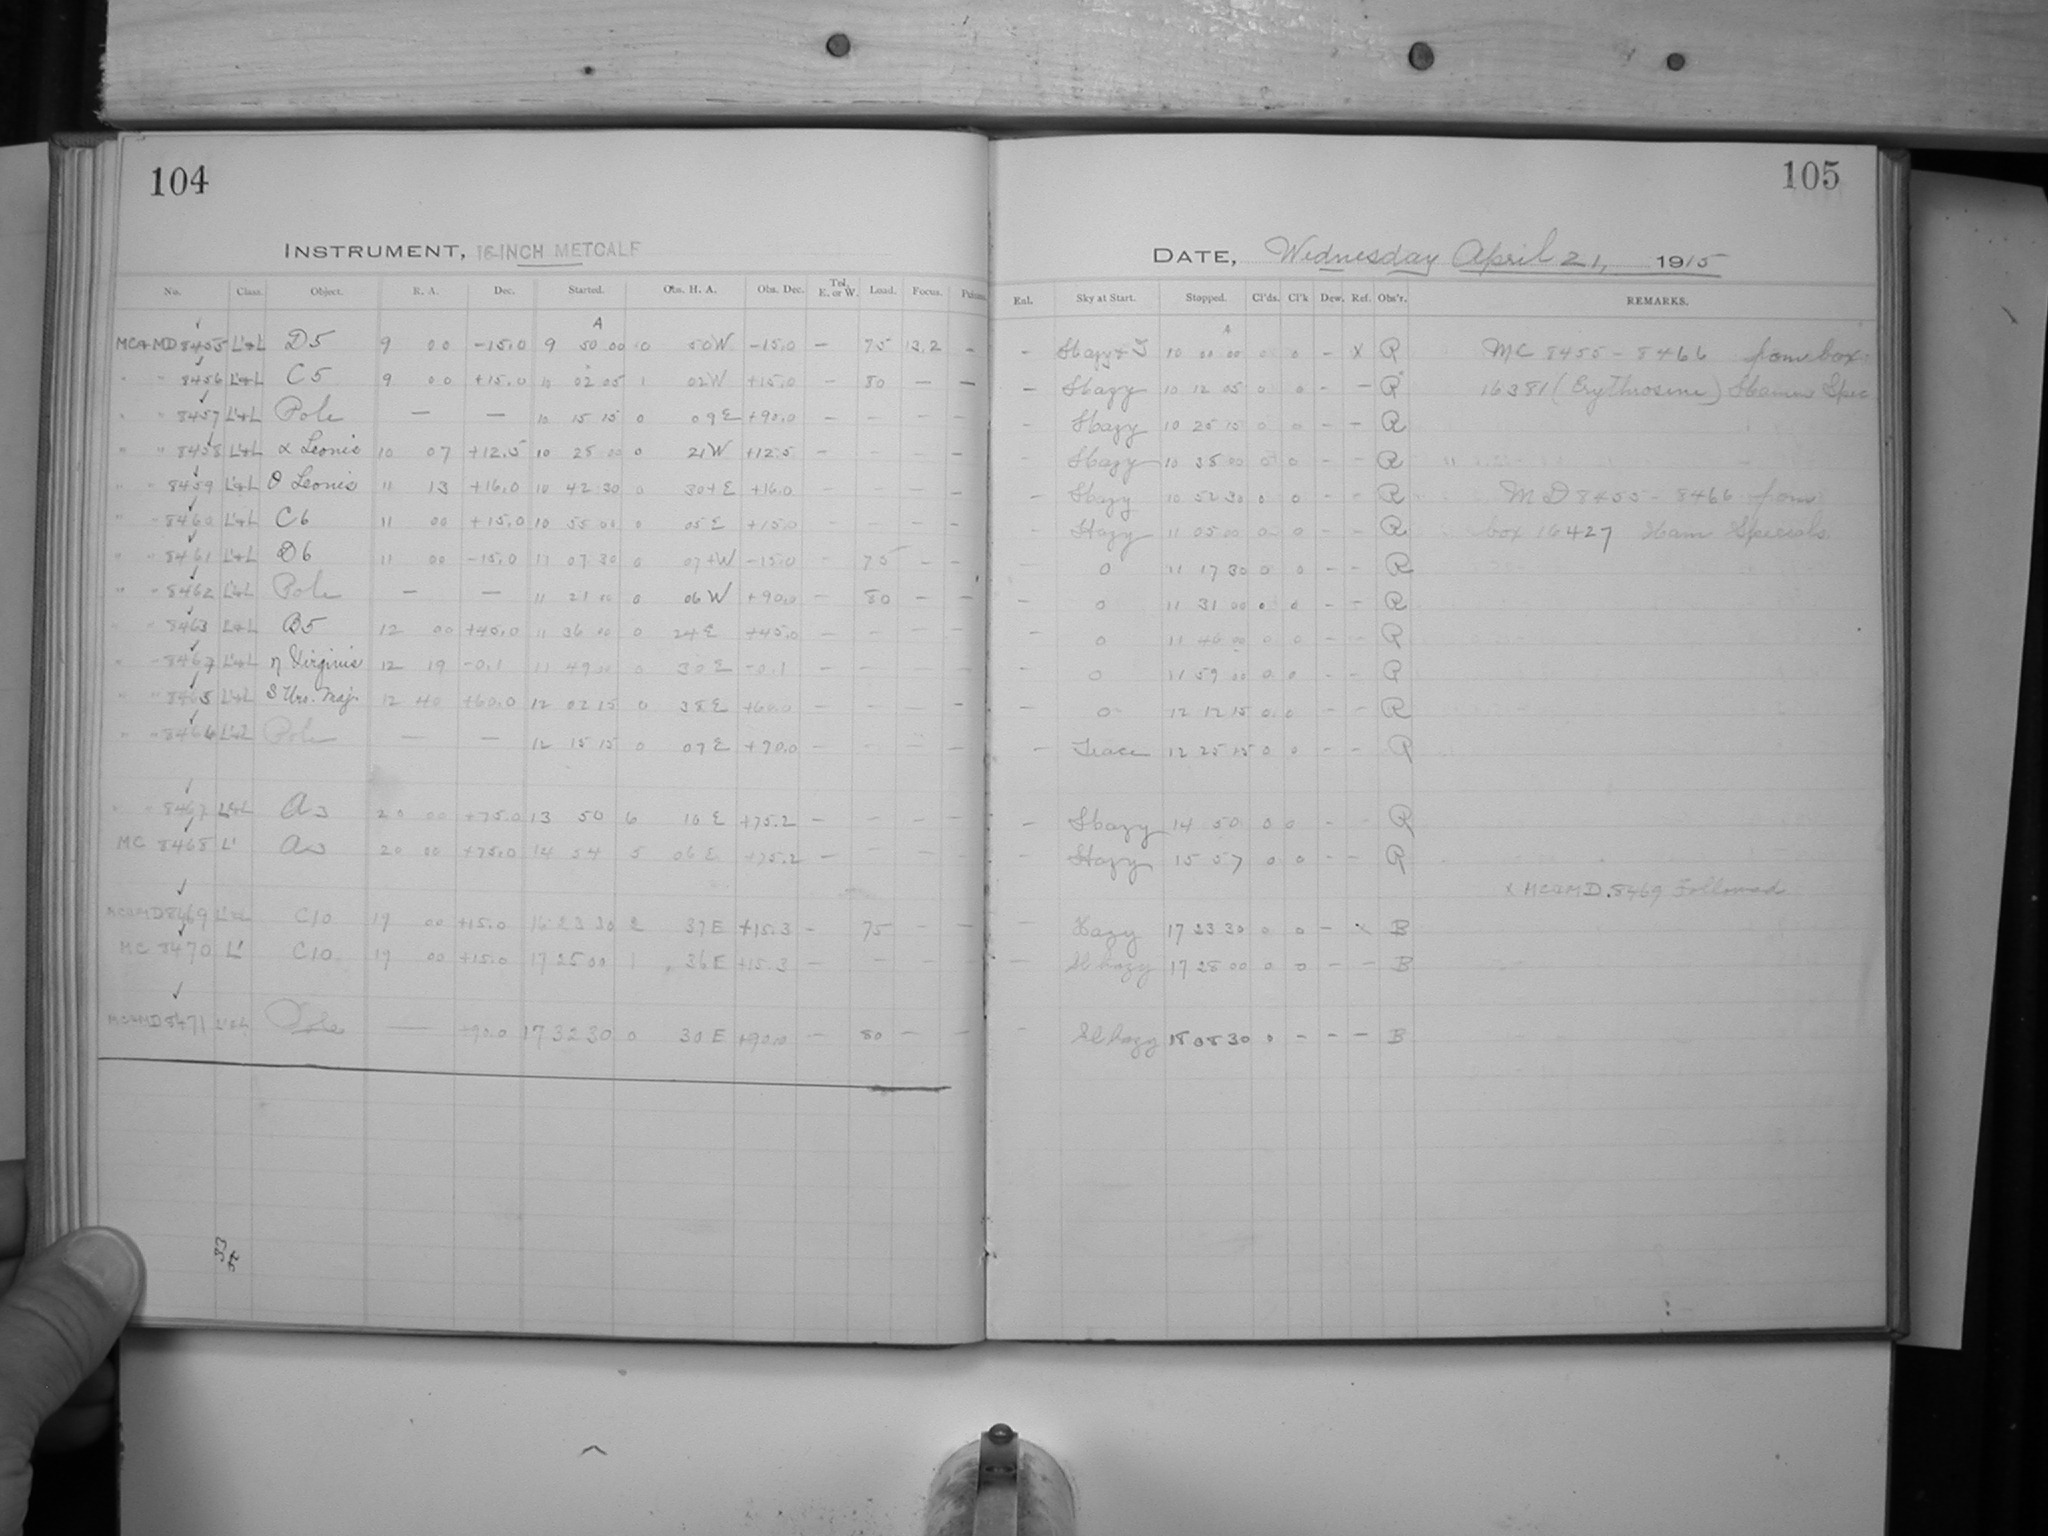 104
INSTRUMENT, 16-INCH METCALF
No. Class. Object. R. A. Dec. Started. Obs. H. A. Obs. Dec. Tel. E. or W. Load. Focus.
A
MC&MD 8455 L'&L D5 9 00 -15.0 9 50 00 0 50 W -15.0 — 75 13.2 -
" " 8456 L'&L C5 9 00 +15.0 10 02 05 1 02 W +15.0 - 80 — —
" " 8457 L'&L Pole — — 10 15 15 0 09 E +90.0 - - - -
" " 8458 L'&L α Leonis 10 07 +12.5 10 25 00 0 21 W +12.5 - - - -
" " 8459 L'&L θ Leonis 11 13 +16.0 10 42 30 0 30+ E +16.0 - - - -
" " 8460 L'&L C6 11 00 +15.0 10 55 00 0 05 E +15.0 - - - -
" " 8461 L'&L D6 11 00 -15.0 11 07 30 0 07+W -15.0 - 75 - -
" " 8462 L'&L Pole — — 11 21 00 0 06 W +90.0 - 80 - -
" " 8463 L'&L B5 12 00 +45.0 11 36 00 0 24 E +45.0 - - - -
" " 8464 L'&L η Virginis 12 19 -0.1 11 49 00 0 30 E -0.1 - - - -
" " 8465 L'&L S Urs. Maj. 12 40 +60.0 12 02 15 0 38 E +60.0 - - - -
" " 8466 L'&L Pole — — 12 15 15 0 07 E +90.0 - - - -
" " 8467 L'&L 20 00 +75.0 13 50 6 10 E +75.2 - - - -
MC 8468 L' 20 00 +75.0 14 54 5 06 E +75.2 - - - -
MC&MD 8469 L'&L C10 19 00 +15.0 16 23 30 2 37 E +15.3 - 75 - -
MC 8470 L' C10 19 00 +15.0 17 25 00 1 36 E +15.3 - - - -
MC&MD 8471 L'&L Pole — +90.0 17 32 30 0 30 E +90.0 - 80 - -
105
DATE, Wednesday April 21, 1915
Enl. Sky at Start. Stopped. Cl'ds. Cl'k Dew. Ref. Obs'r. REMARKS.
- Hazy 10 00 00 0 0 - X R MC 8455 - 8466 from box
- Hazy 10 12 05 0 0 - - R 16381 (Erythrosine) Hamm Spec
- Hazy 10 25 15 0 0 - - R
- Hazy 10 35 00 0 0 - - R
- Hazy 10 52 30 0 0 - - R MD 8455 - 8466 from
- Hazy 11 05 00 0 0 - - R box 16427 Ham Specials
- 0 11 17 30 0 0 - - R
- 0 11 31 00 0 0 - - R
- 0 11 46 00 0 0 - - R
- 0 11 59 00 0 0 - - R
- 0 12 12 15 0 0 - - R
- Trace 12 25 15 0 0 - - R
- Hazy 14 50 0 0 - - R
- Hazy 15 57 0 0 - - R
x MC&MD.8469 Followed
- Hazy 17 23 30 0 0 - x B
- Sl hazy 17 28 00 0 0 - - B
- Sl hazy 18 08 30 0 - - - B